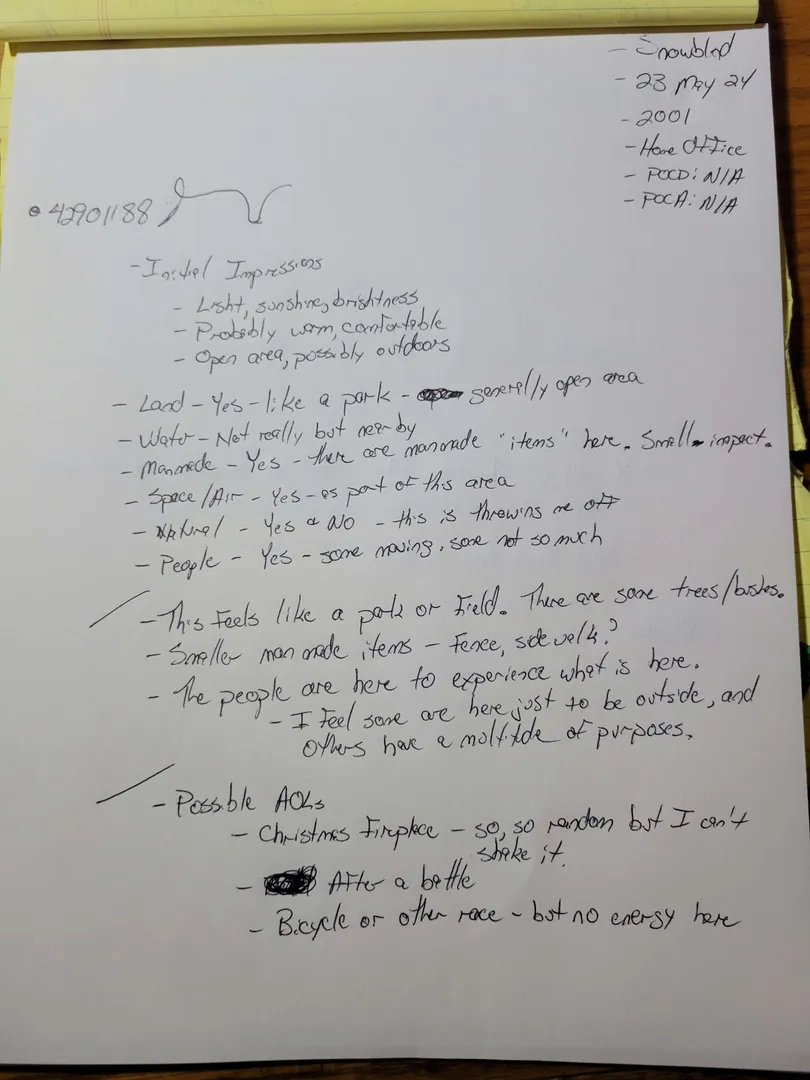 - Snowblind
- 23 May 24
- 2001
- Home Office
- POCD: N/A
- POCA: N/A
42901188
- Initial Impressions
- Light, sunshine, brightness
- Probably warm, comfortable
- Open area, possibly outdoors
- Land - Yes - like a park - generally open area
- Water - Not really but nearby
- Manmade - Yes - there are manmade "items" here. Small impact.
- Space/Air - Yes - as part of this area
- Natural - Yes & No - this is throwing me off
- People - Yes - some moving, some not so much
- This feels like a park or Field. There are some trees/bushes.
- Smaller man made items - Fence, sidewalk?
- The people are here to experience what is here.
- I feel some are here just to be outside, and
others have a multitde of purposes.
- Possible AOLs
- Christmas Fireplace - so, so random but I can't
shake it.
- After a battle
- Bicycle or other race - but no energy here